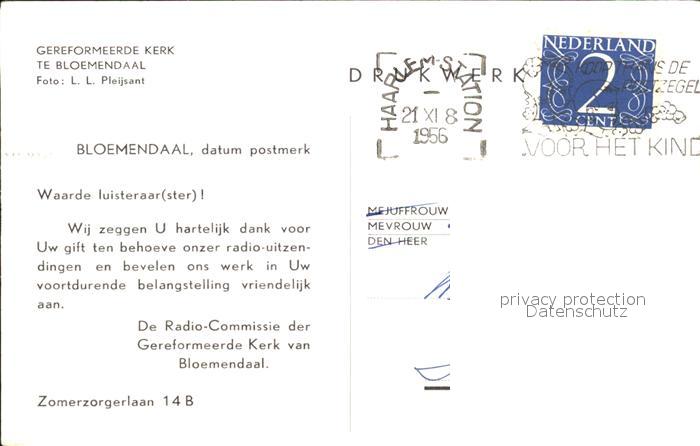 GEREFORMEERDE KERK
TE BLOEMENDAAL
Foto: L. L. Pleijsant
DRUKWERK
HAARLEM-STATION
21 XI 8
1956
NEDERLAND
2
CENT
VOOR HET KIND
BLOEMENDAAL, datum postmerk
Waarde luisteraar(ster)!
Wij zeggen U hartelijk dank voor
Uw gift ten behoeve onzer radio-uitzen-
dingen en bevelen ons werk in Uw
voortdurende belangstelling vriendelijk
aan.
De Radio-Commissie der
Gereformeerde Kerk van
Bloemendaal.
Zomerzorgerlaan 14 B
MEJUFFROUW
MEVROUW
DEN HEER
privacy protection
Datenschutz